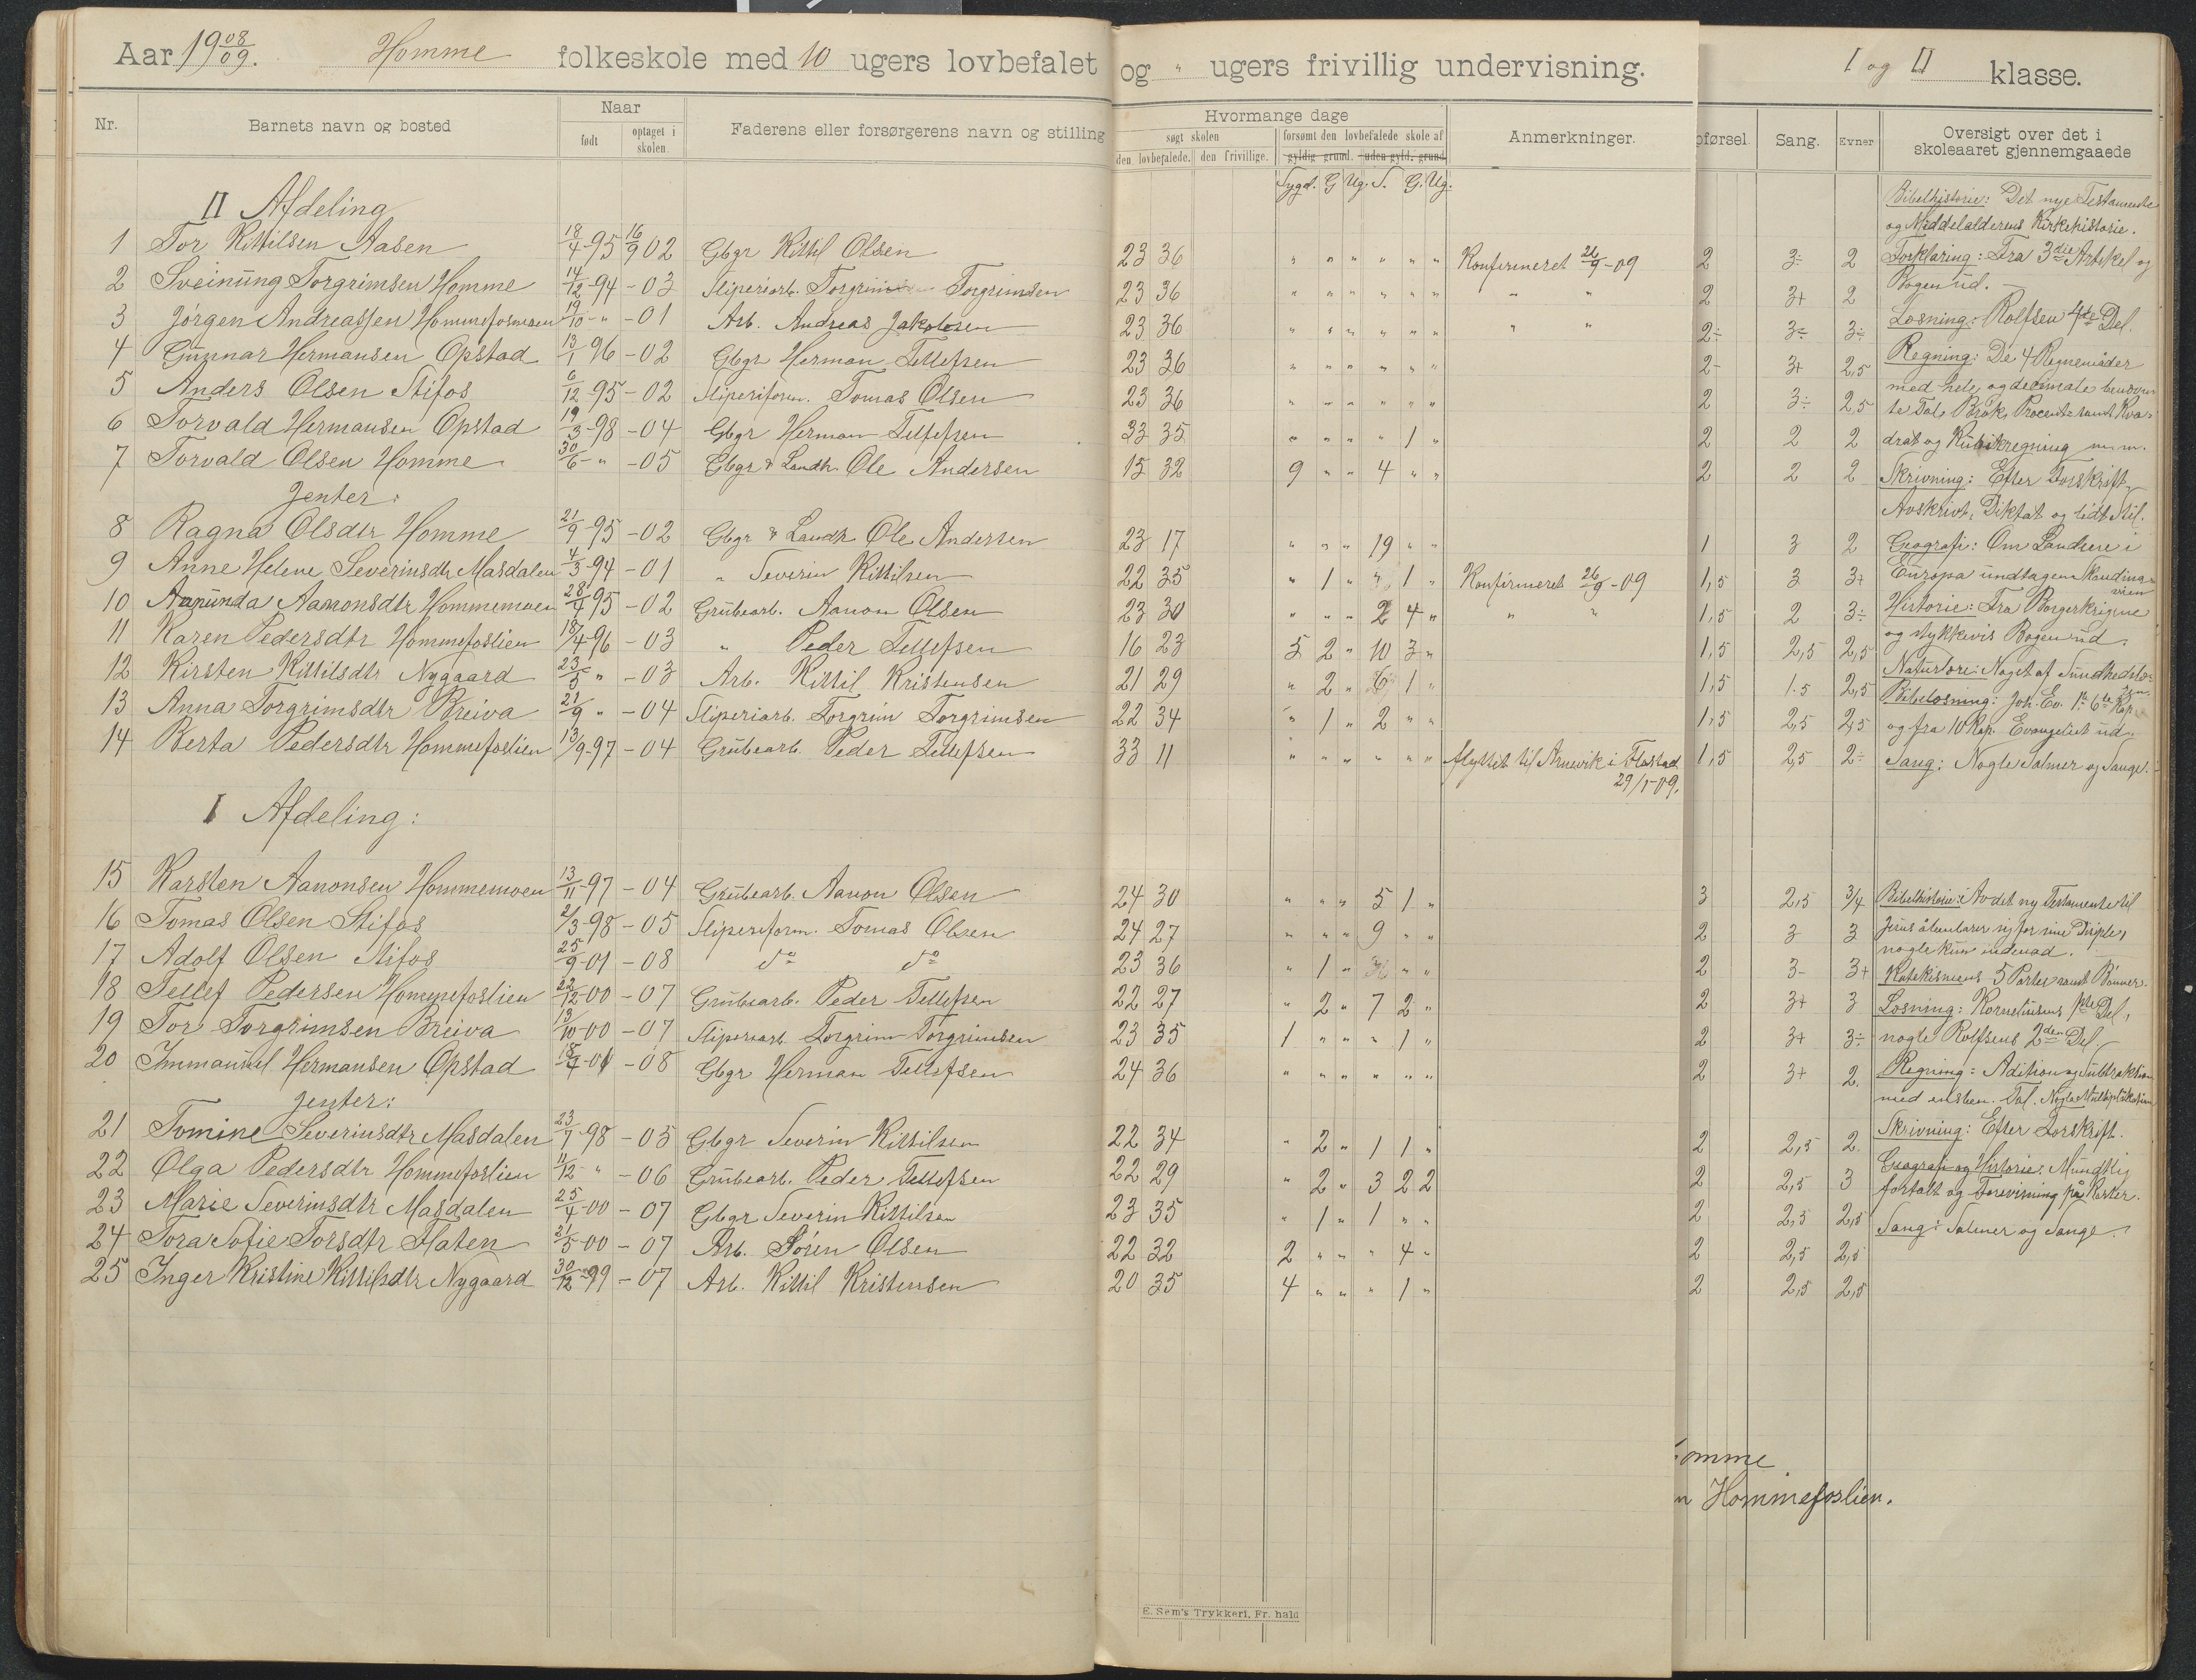 Aar 19 08/09. Homme folkeskole med 10 ugers lovbefalet og " ugers frivillig undervisning. I og II klasse.
Nr. Barnets navn og bosted Naar Faderens eller forsørgerens navn og stilling Hvormange dage Anmerkninger. pførsel. Sang. Evner Oversigt over det i
født optaget i skolen. søgt skolen forsømt den lovbefalede skole af skoleaaret gjennemgaaede
den lovbefalede. den frivillige. gyldig grund. uden gyld. grund
Sygd. G Ug. S. G. Ug.
II Afdeling
1 Tor Kittilsen Aasen 18/4-95 16/9 02 Gbgr Kittel Olsen 23 36 " " " " " " Konfirmeret 26/9-09 2 3÷ 2
2 Sveinung Torgrimsen Homme 14/12-94 -03 Sliperiarb. Torgrim Torgrimsen 23 36 " " " " " " " " 2 3+ 2
3 Jørgen Andreassen Hommefosmoen 19/10-" -01 Arb. Andreas Jakobsen 23 36 " " " " " " " " 2÷ 3÷ 3÷
4 Gunnar Hermansen Opstad 13/1 96 -02 Gbgr Herman Tellefsen 23 36 " " " " " " 2- 3+ 2,5
5 Anders Olsen Stifos 6/12-95 -02 Sliperiform. Tomas Olsen 23 36 " " " " " " 2 3÷ 2,5
6 Torvald Hermansen Opstad 19/3-98 -04 Gbgr Herman Tellefsen 33 35 " " " " 1 " 2 2 2
7 Torvald Olsen Homme 30/6-" -05 Gbgr & Landh. Ole Andersen 15 32 9 " " 4 " " 2 2 2
Jenter:
8 Ragna Olsdtr Homme 21/9-95 -02 Gbgr & Landh Ole Andersen 23 17 " " " 19 " " 1 3 2
9 Anne Helene Severinsdtr Masdalen 4/3-94 -01 " Severin Kittilsen 22 35 " 1 " " 1 " Konfirmeret 26/9-09 1,5 3 3+
10 Aanunda Aanonsdtr Hommemoen 28/4 95 -02 Grubearb. Aanon Olsen 23 30 " " " 2 4 " " " 1,5 2 3÷
11 Karen Pedersdtr Hommefoslien 18/4 96 -03 " Peder Tellefsen 16 23 5 2 " 10 3 " 1,5 2,5 2,5
12 Kirsten Kittilsdtr Nygaard 23/5 " -03 Arb. Kittil Kristensen 21 29 " 2 " 6 1 " 1,5 1.5 2,5
13 Anna Torgrimsdtr Breiva 21/9 " -04 Sliperiarb. Torgrim Torgrimsen 22 34 " 1 " 2 " " 1,5 2,5 2,5
14 Berta Pedersdtr Hommefoslien 13/9-97 -04 Grubearb. Peder Tellefsen 33 11 " " " " " " flyttet til Arnevik i Flostad 1,5 2,5 2÷
29/5-09.
I Afdeling:
15 Karsten Aanonsen Hommemoen 13/11-97 -04 Grubearb. Aanon Olsen 24 30 " " " 5 1 " 3 2,5 3/4
16 Tomas Olsen Stifos 2/3-98 -05 Sliperiform. Tomas Olsen 24 27 " " " 9 " " 2 3 3
17 Adolf Olsen Stifos 25/9-01 -08 do do 23 36 " 1 " " " 2 3- 3+
18 Tellef Pedersen Hommefoslien 22/12-00 -07 Grubearb. Peder Tellefsen 22 27 " 2 " 7 2 " 2 3+ 3
19 Tor Torgrimsen Breiva 13/10-00 -07 Sliperiarb Torgrim Torgrimsen 23 35 1 " " " 1 " 2 3+ 3÷
20 Immanuel Hermansen Opstad 18/4-01 -08 Gbgr Herman Tellefsen 24 36 " " " " " " 2 3+ 2.
Jenter:
21 Tomine Severinsdtr Masdalen 23/7 98 -05 Gbgr Severin Kittilsen 22 34 " 2 " 1 1 " 2 2,5 2.
22 Olga Pedersdtr Hommefoslien 11/12 " -06 Grubearb. Peder Tellefsen 22 29 " 2 " 3 2 2 2 2,5 3
23 Marie Severinsdtr Masdalen 25/4-00 -07 Gbgr Severin Kittilsen 23 35 " 1 " 1 " " 2 2,5 2,5
24 Tora Sofie Torsdtr Flaten 31/5-00 -07 Arb. Søren Olsen 22 32 2 " " " 4 " 2 2,5 2,5
25 Inger Kristine Kittilsdtr Nygaard 30/12-99 -07 Arb. Kittil Kristensen 20 35 4 " " " 1 " 2 2,5 2,5
Bibelhistorie: Det nye Testamente
og Middelalderens Kirkehistorie.
Forklaring: Fra 3die Artikel og
Bogen ud.
Læsning: Rolfsen 4de Del.
Regning: De 4 Regnemåder
med hele og decimale
te Tal, Brøk, Procent samt Kva-
drat og Kubikregning m. m.
Skrivning: Efter Forskrift,
Avskrivt, Diktat og lidt Stil.
Geografi: Om Landene i
Europa undtagen Skandina-
vien
Historie: Fra Borgerkrigene
og stykkevis Bogen ud.
Naturlære: Noget af Sundhedslæ-
Bibellæsning: Joh. Ev. 1te-6te Kap.
og fra 10 Kap. Evangeliet ud.
Sang: Nogle Salmer og Sange.
Bibelhistorie: Av det ny Testamente til
Jesus åbenbarer sig for sine Disiple,
nogle kun indenad.
Katekismens 5 Parter samt Bønner.
Læsning: Kornelius 1ste Del,
nogle Rolfsens 2den Del.
Regning: Adition og Subtraktion
med ensben. Tal. Nogle Multiplikation
Skrivning: Efter Forskrift.
Geografi og Historie: Mundtlig
fortalt og Forevisning på Karter.
Sang: Salmer og Sange.
omme
n Hommefoslien.
E. Sem's Trykkeri, Fr. hald